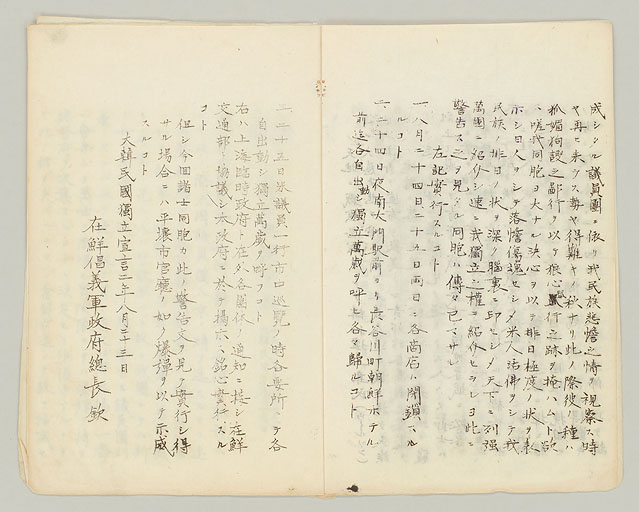 成シタル議員團ニ依リ我民族悲憺之情ヲ視察ス時
ヤ再ニ来ラス勢ヤ得難キノ秋ナリ此ノ際彼ノ種ハ
狐媚狗諛之鄙行ヲ以テ狼心 行之跡ヲ掩ハムト欲
ス嗟我同胞ヨ大ナル決心ヲ以テ排日極度ノ状ヲ表
ホシ日人ヲシテ落憺傷魂セシメ米人活佛ヲシテ我
民族ノ排日ノ状ヲ深ク腦裏ニ印セシメ天下ニ列强
萬国ニ紹介シ速ニ我獨立ノ權ヲ紹介セラレヨ此ニ
警告ス之ヲ見タル同胞ハ傳ヘテ已マサレ
左記實行スルコト
一八月二十四日二十五日両日ニ各商店ハ閉鎖スル
コト
一二十四日夜南大門駅前ヨリ長谷川町朝鮮ホテル
前迄各自出動シ獨立萬歳ヲ呼ヒ各々歸ルコト
一二十五日米議員一行市ロ巡覧ノ時各要所ニテ各
自出動シ獨立萬歳ヲ呼フコト
右ハ上海臨時政府ニ在外各團体ノ通知ニ接シ在鮮
交通部ト協議シ本政府ニ於テ揭示ス銘心實行スル
コト
但シ今回諸士同胞カ此ノ警告文ヲ見テ實行シ得
サル場合ニハ平壤市官廳ノ如ク爆彈ヲ以テ示威
スルコト
大韓民國獨立宣言二年八月二十三日
在鮮倡義軍政府總長欽